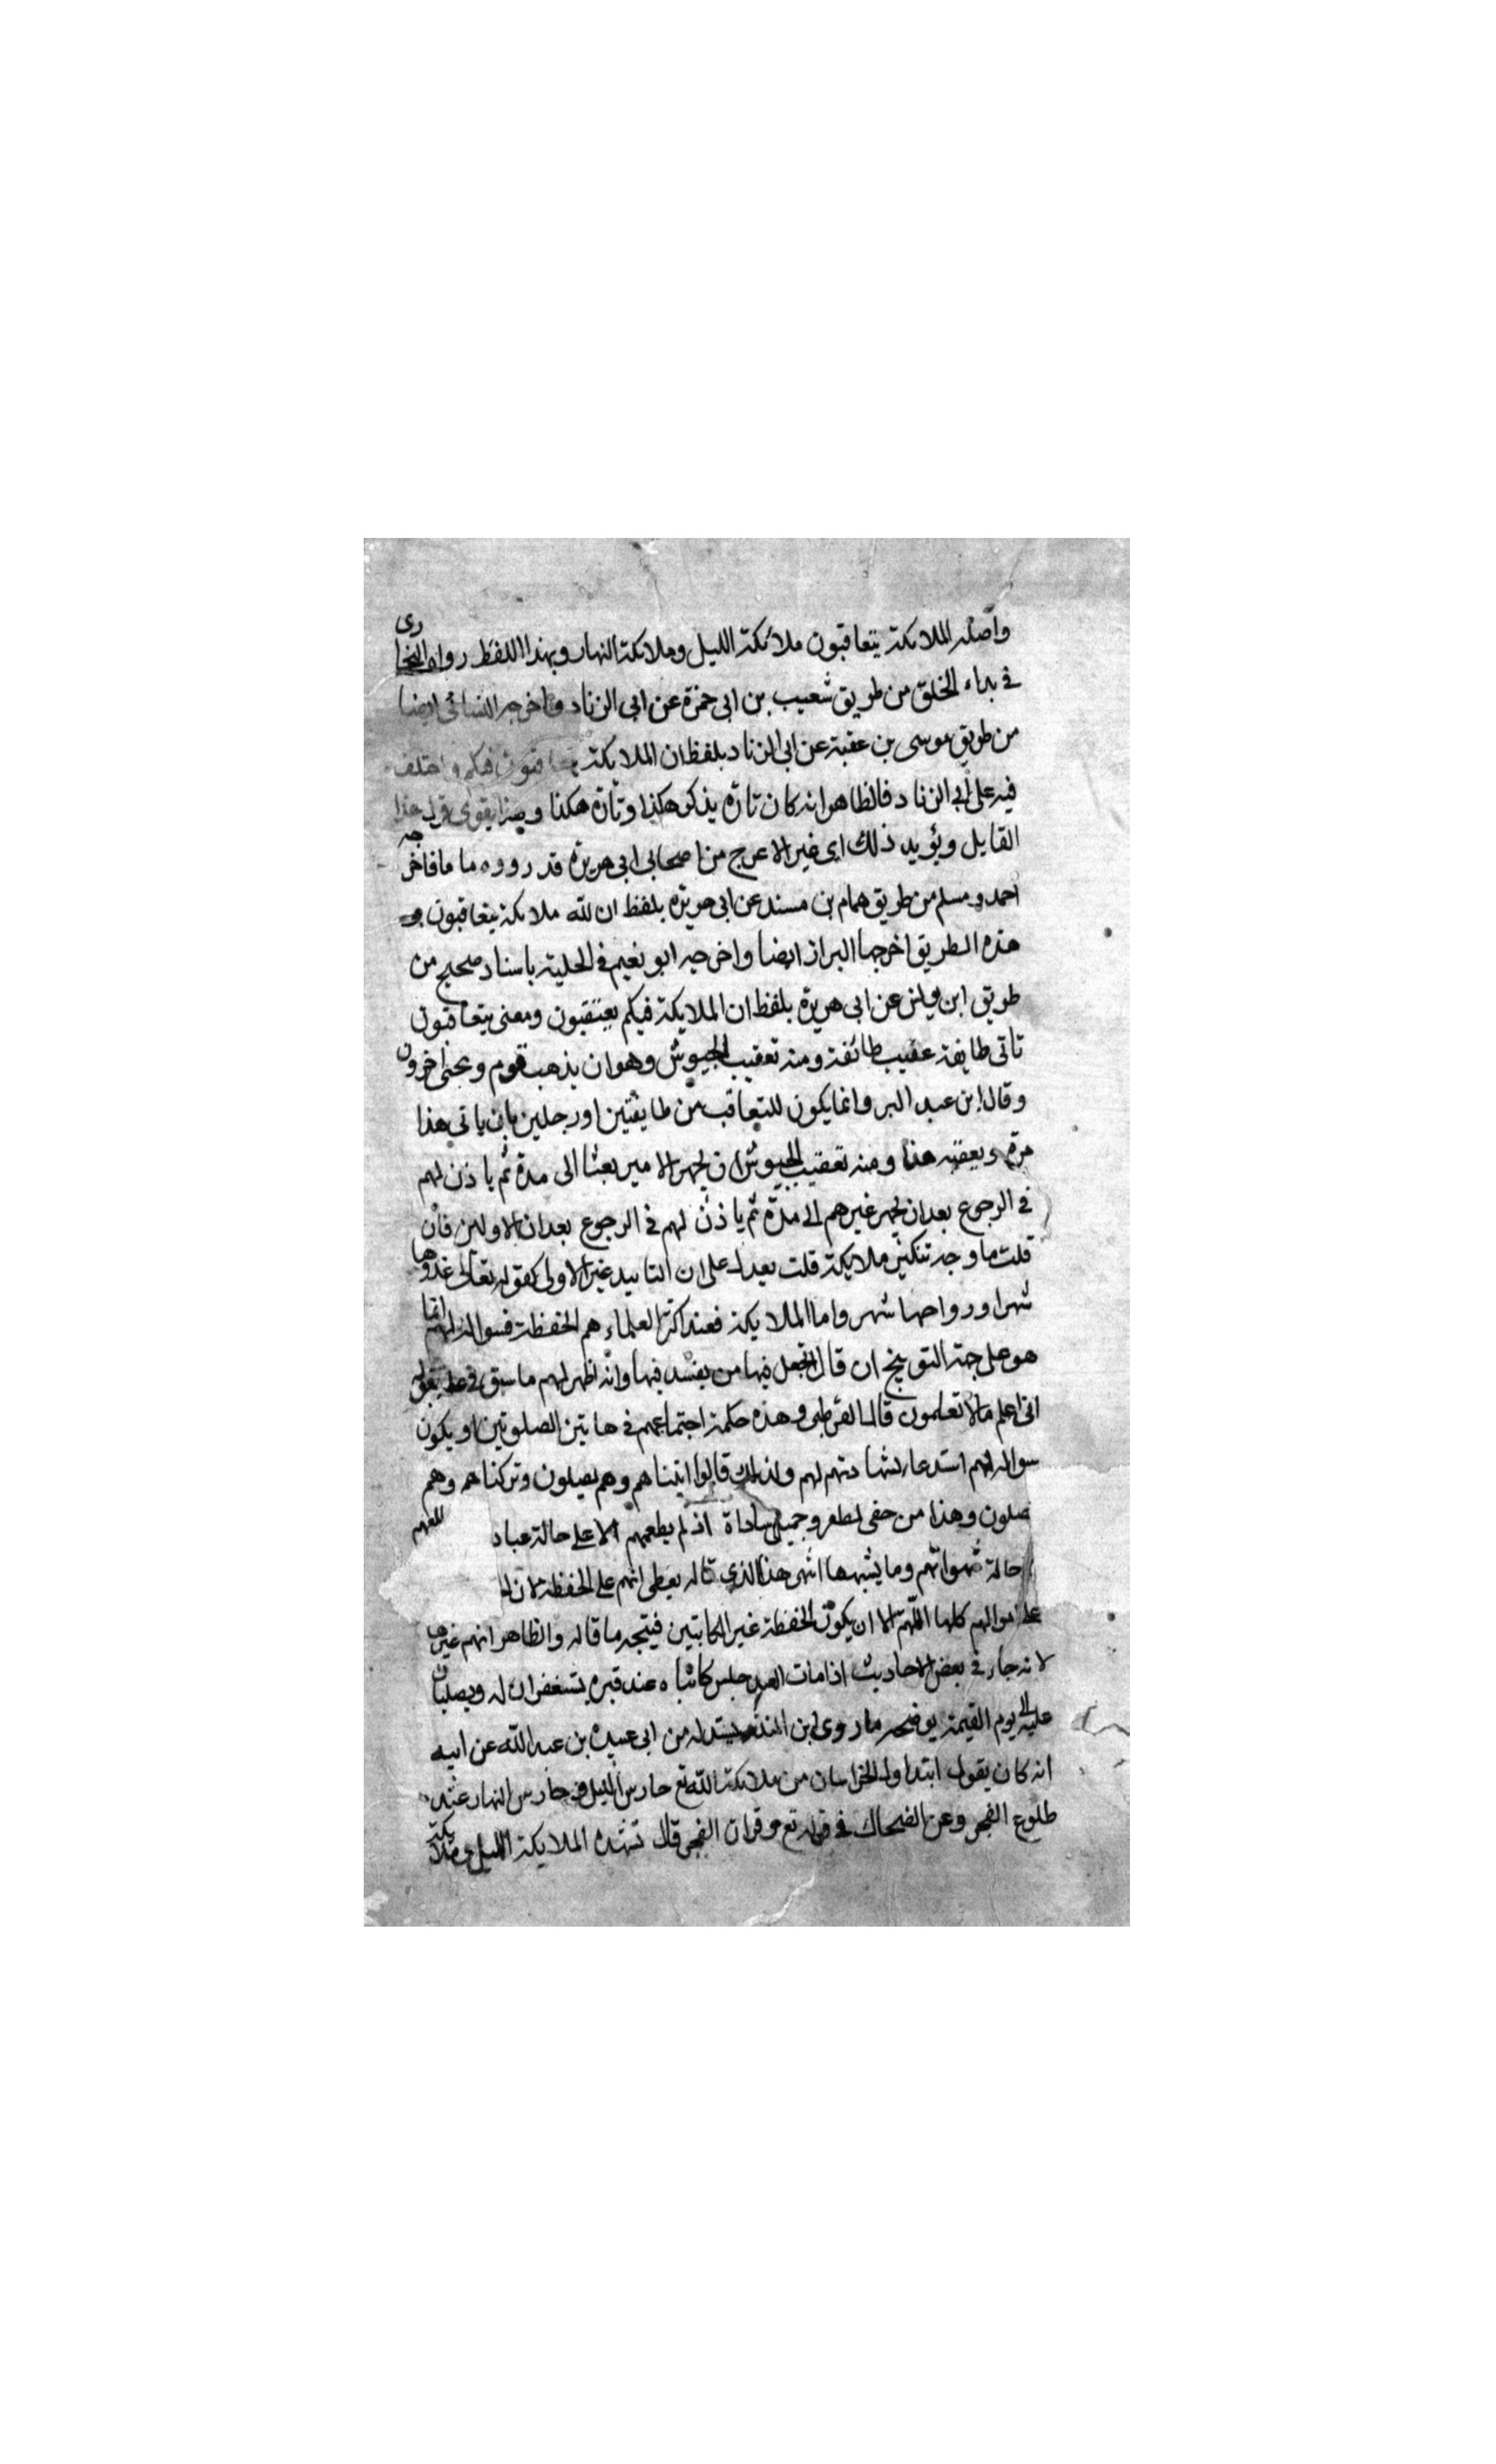 واصله الملائكة يتعاقبون ملائكة الليل وملائكة النهار وبهذا اللفظ رواه البخارى
فى بداء الخلق من طريق شعيب بن ابى حمزة عن ابى الزناد واخرجه النسائى ايضا
من طريق موسى بن عقبة عن ابى الزناد بلفظ ان الملايكة يتعاقبون فيكم واختلف
فيه على أبى الزناد فالظاهر انه كان تارة يذكر هكذا وتارة هكذا وهذا يقوى قول هذا
القايل ويؤيد ذلك اى غير الاعرج من اصحابى ابى هريرة قد رووه ما مافاخرجه
احمد ومسلم من طريق همام بن مسند عن ابى هريرة بلفظ ان لله ملايكة يتعاقبون
هذه الطريق اخرجها البزاز ايضا واخرجه ابو نعيم فى الحلية باسناد صحيح من
طريق ابن عن ابى هريرة بلفظ ان الملايكة فيكم يعتقبون ومعنى يتعاقبون
تاتى طايفة عقيب طائفة ومنه تعقيب الجيوش وهو ان يذهب قوم ويجئ اخرون
وقال ابن عبد البر وانما يكون للتعاقب من طايفتين او رجلين بان ياتى هذا
مرة ويعقبه هذا ومنه تعقيب الجيوش ان يجهر الامير بعثا الى مدة ثم ياذن لهم
فى الرجوع بعد ان يجهر غيرهم الى مدة ثم ياذن لهم فى الرجوع بعد ان الاولين فان
قلت ما وجه تنكير ملايكة قلت يعد على ان التانيه غير الاولى كقوله تعالى غدوها
شهر ورواحها شهر واما الملايكة فعند اكثر العلماء هم الحفظة فسواله لهم انما
هو على جهة التوبيخ ان قال اتجعل فيها من يفسد فيها وانه اظهر لهم ما سبق فى علمه بقوله
انى اعلم مالا تعلمون قال القرطبى وهذه حكمة اجتماعهم فى هاتين الصلوتين او يكون
سواله لهم استدعا لشهادتهم لهم ولذلك قالوا اتيناهم وهم يصلون وتركناهم وهم
يصلون وهذا من خفى لطفه وجميل اذ لم يطعمهم الا على حالة عباد
حالة شهواتهم وما يشبهها انتهى هذا الذى قاله يعطى انهم على الحفظة لان
على احوالهم كلها اللهم الا ان يكون الحفظة غير الكاتبين فيتجه ما قاله والظاهر انهم غيرهما
لانه جاء فى بعض الاحاديث اذا مات العبد جلس كاتباه عند قبره يستغفران له ويصليان
عليه الى يوم القيمة يوضحه ما روى ابن المنذر من ابى عبيدة بن عبد الله عن ابيه
انه كان يقول ابتداول من ملايكة الله تع حارس الليل وحارس النهار عند
طلوع الفجر وعن الضحاك فى قوله تع وقران الفجر قال تشهده الملايكة الليل وملايكة